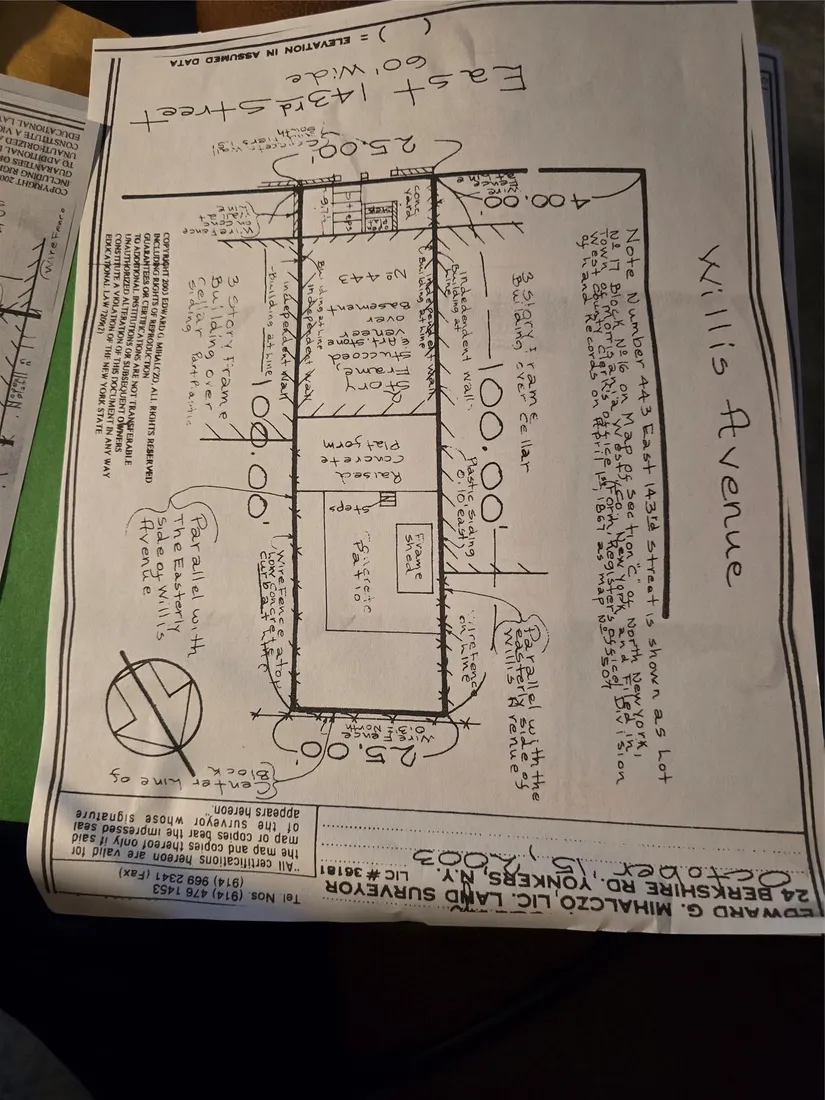 Willis Avenue
Note Number 443 East 143rd Street is shown as Lot
No 17 Block No 16 on Map of Section "C" of North New York,
Town of Morrisania West Co. New York and Filed in
West County Clerk's Office (Form. Register's Office) Division
of Land Records on April 1st, 1867 as map No
( ) = ELEVATION IN ASSUMED DATA
East 143rd Street
60' Wide
25.00'
Concrete wall
South
400.00'
conc
yard
Steps
3 Story Frame
Building over Cellar
Independent wall
Building at
Line
100.00'
Plastic siding
0.10 east
Independent wall
Building at Line
No 443
2 Story
Frame
Stuccoed
W/ Part Stone
veneer
over
Basement
Independent wall
Building at Line
Independent wall
Building at Line
100.00'
3 Story Frame
Building over
Cellar Part Plastic
siding
Raised
Concrete
Platform
Steps
Frame
shed
Concrete
Patio
Wire Fence
on Line
Parallel with the
easterly side of
Willis Avenue
Wire Fence atop
Low Concrete
curb at Line
Parallel with
The Easterly
side of Willis
Avenue
Wire Fence
North
25.00'
Center Line of
Block
COPYRIGHT 2003 EDWARD G. MIHALCZO, ALL RIGHTS RESERVED
INCLUDING RIGHTS OF REPRODUCTION
GUARANTEES OR CERTIFICATIONS ARE NOT TRANSFERABLE
TO ADDITIONAL INSTITUTIONS OR SUBSEQUENT OWNERS
UNAUTHORIZED ALTERATION OF THIS DOCUMENT IN ANY WAY
CONSTITUTE A VIOLATION OF THE NEW YORK STATE
EDUCATIONAL LAW 7209(2)
October 15, 2003
EDWARD G. MIHALCZO, LIC. LAND SURVEYOR
24 BERKSHIRE RD. YONKERS, N.Y. LIC # 36181
"All certifications hereon are valid for
the map and copies thereof only if said
map or copies bear the impressed seal
of the surveyor whose signature
appears hereon."
Tel Nos. (914) 476 1453
(914) 969 2341 (Fax)
COPYRIGHT
INCLUDING RIGH
GUARANTEES OR
TO ADDITIONAL
UNAUTHORIZED
CONSTITUTE A VIO
EDUCATIONAL LA